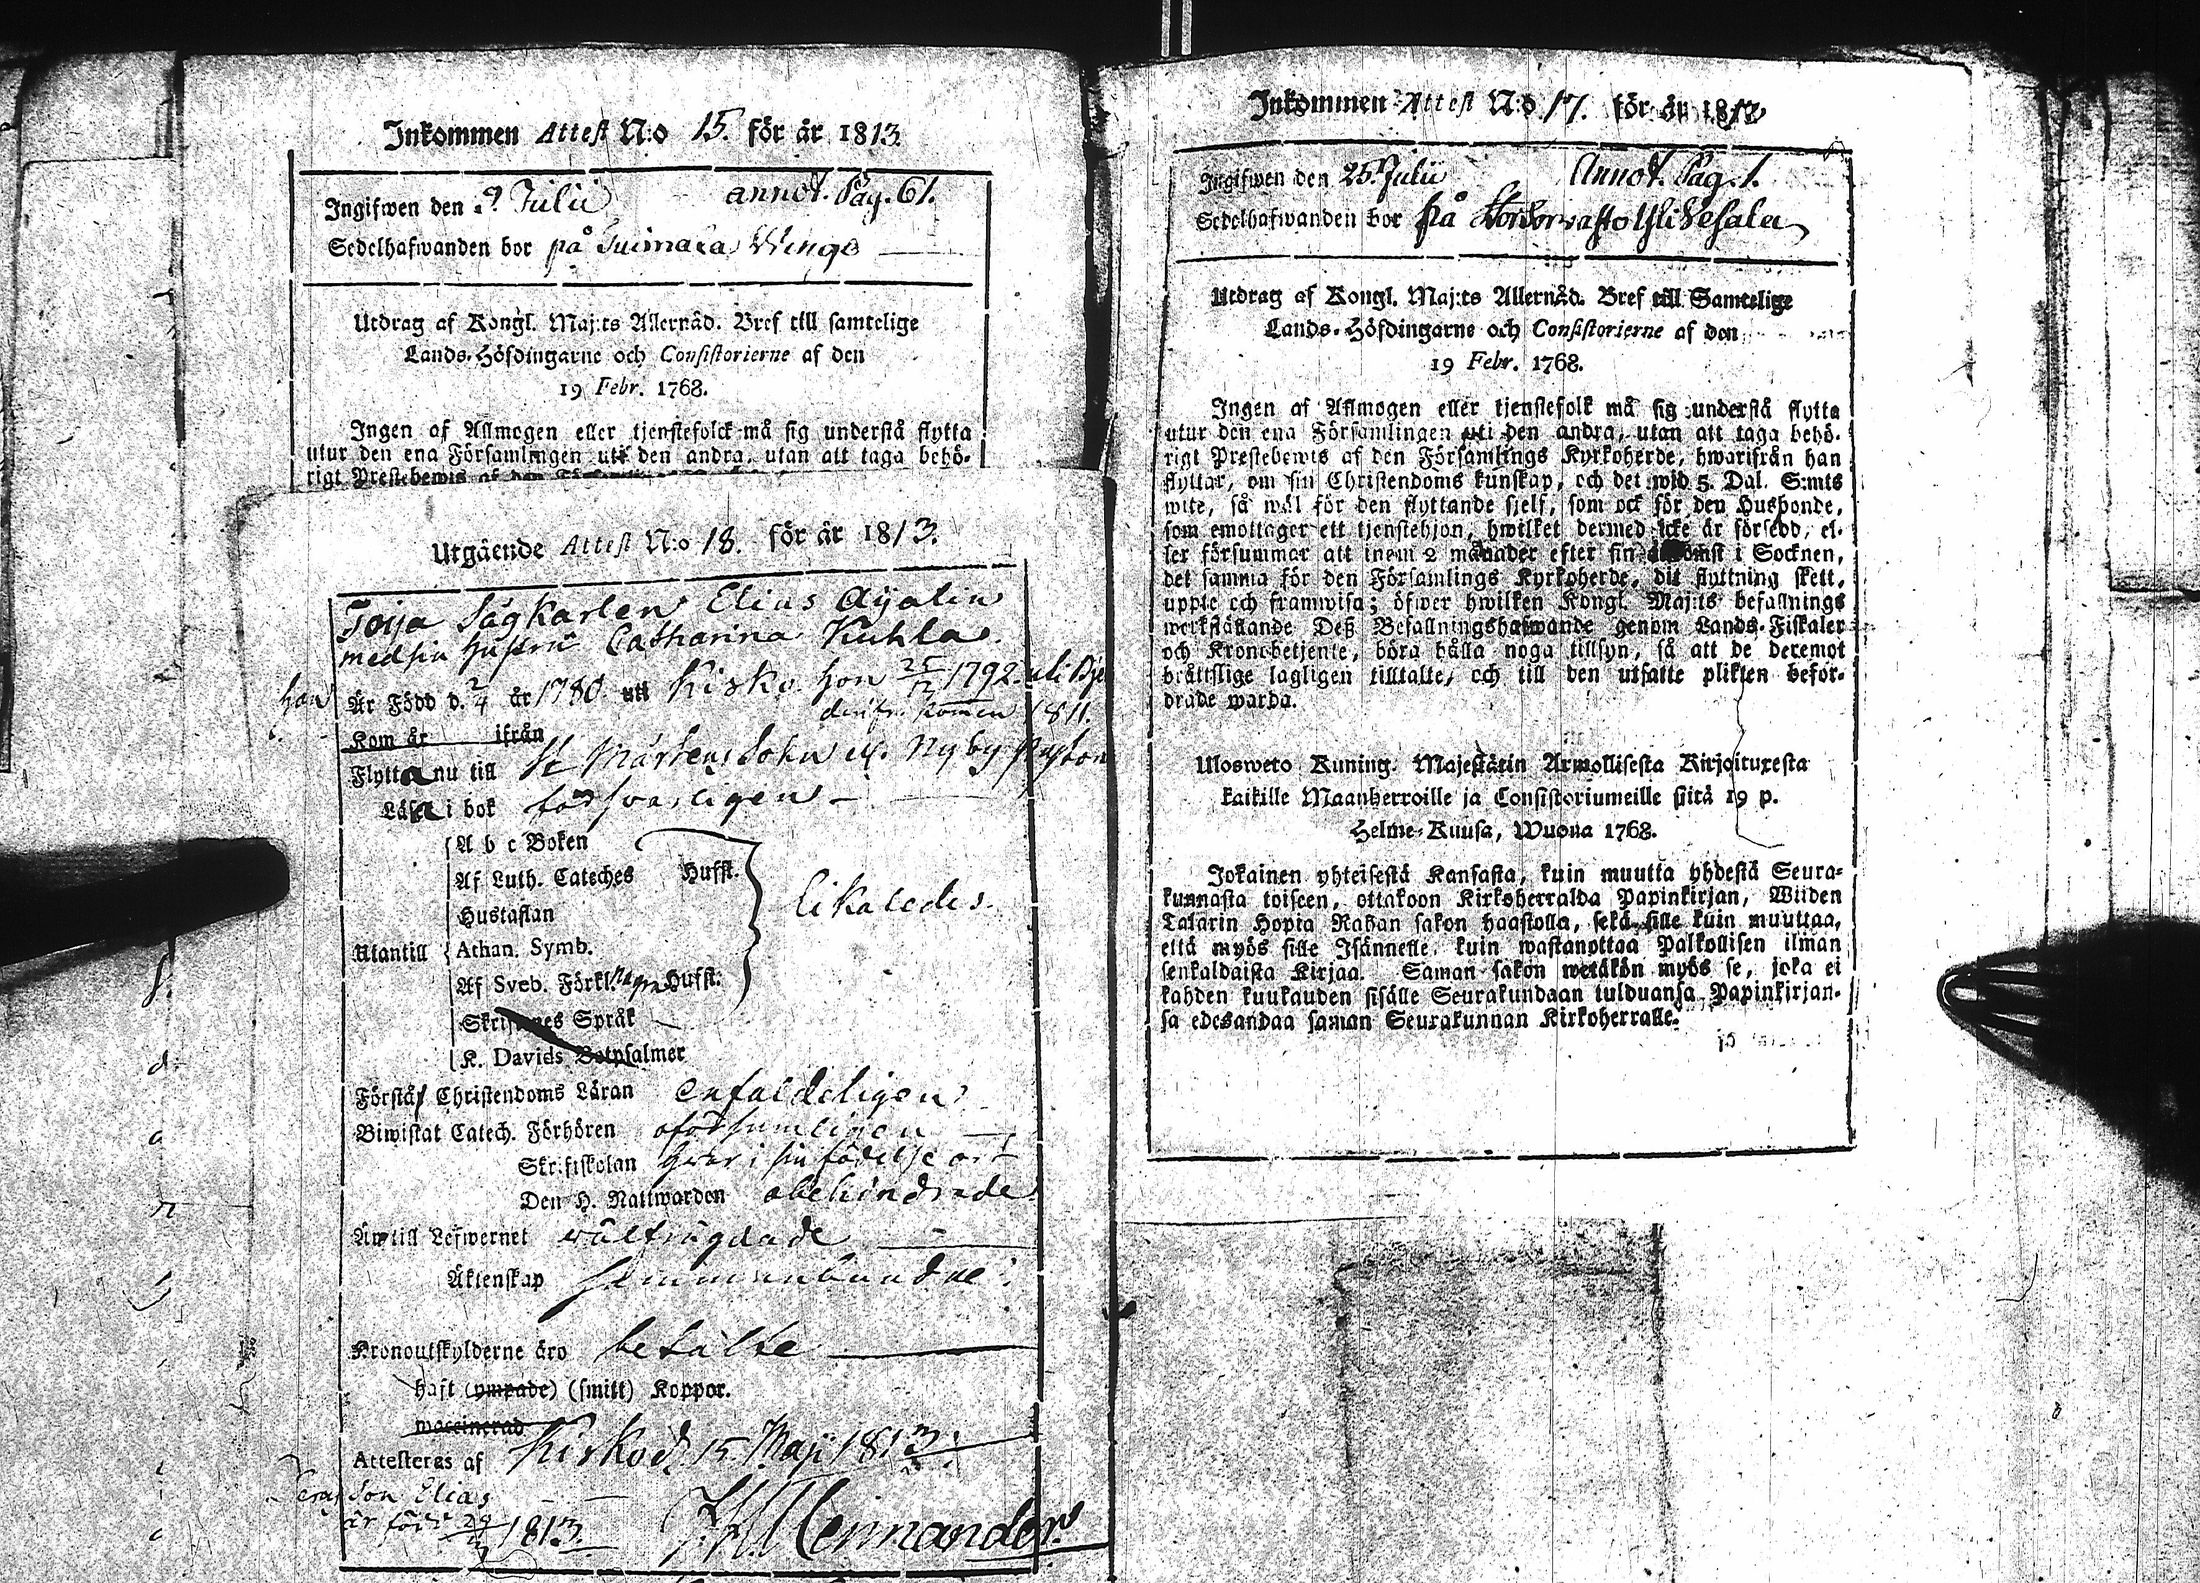 Inkommen Attest N:o 15. för år 1813.
Ingifwen den 9 Julii annot. Pag. 61.
Sedelhafwanden bor på Tuimala Wings
Utdrag af Kongl. Maj:ts Allernåd. Bref till samtelige
Lands-Höfdingarne och Consistorierne af den
19 Febr. 1768.
Ingen af Allmogen eller tjenstefolck må sig understå flytta
utur den ena Församlingen uti den andra, utan att taga behö-
rigt Prestebewis af den
Utgående Attest N:o 18. för år 1813.
Toija Sågkarlen Elias Ajalin
med sin hustru Catharina Kuhla.
han Är Född d. 2/4 år 1780 uti Kisko. hon 25/12 1792. uti
derifr. komen 1811.
Kom år ifrån
Flytta nu till St Mårtens Sokn Nyby
Läsa i bok försvarligen
A b c Boken
Af Luth. Cateches Hufst.
Hustaflan
likaledes.
Utantill Athan. Symb.
Af Sveb. Förkl. några Hufst.
Skriftenes Språk
K. Davids Botpsalmer
Förstå Christendoms Läran enfaldeligen
Biwistat Catech. Förhören oförsumligen
Skriftskolan hvar i sin födelse ort
Den H. Nattwarden obehindrade
Äro till Lefwernet wälfrägdade
Äktenskap sammanbundne
Kronoutskylderne äro betalte
haft (ympade) (smitt) Koppor.
waccinerad
Attesteras af Kisko d. 15 Maji 1813.
Son Elias
är född 29/3 1813.
Heimander
Inkommen Attest N:o 17. för år 1813
Ingifwen den 25 Julii Annot. Pag. 1.
Sedelhafwanden bor på
Utdrag af Kongl. Maj:ts Allernåd. Bref till Samtelige
Lands-Höfdingarne och Consistorierne af den
19 Febr. 1768.
Ingen af Allmogen eller tjenstefolk må sig understå flytta
utur den ena Församlingen uti den andra, utan att taga behö-
rigt Prestebewis af den Församlings Kyrkoherde, hwarifrån han
flyttar, om sin Christendoms kunskap, och det wid 5. Dal. S:mts
wite, så wäl för den flyttande sjelf, som ock för den Husbonde,
som emottager ett tjenstehjon, hwilket dermed icke är försedd, el-
ler försummar att inom 2 månader efter sin ankomst i Socknen,
det samma för den Församlings Kyrkoherde, dit flyttning skett,
uppte och framwisa; öfwer hwilken Kongl. Maj:ts befallnings
werkställande Deß Befallningshafwande genom Lands-Fiskaler
och Kronobetjente, böra hålla noga tillsyn, så att de deremot
bråttslige lagligen tilltalte, och till den utsatte plikten beför-
drade warda.
Ulosweto Kuning. Majestätin Armollisesta Kirjoituxesta
kaikille Maanherroille ja Consistoriumeille siitä 19 p.
Helme-Kuusa, Wuona 1768.
Jokainen yhteisestä Kansasta, kuin muutta yhdestä Seura-
kunnasta toiseen, ottakoon Kirkoherralda Papinkirjan, Wiiden
Talarin Hopia Rahan sakon haastolla, sekä sille kuin muuttaa,
että myös sille Isännelle, kuin wastanottaa Palkollisen ilman
senkaldaista Kirjaa. Saman sakon wetäkön myös se, joka ei
kahden kuukauden sisälle Seurakundaan tulduansa Papinkirjan-
sa edesandaa saman Seurakunnan Kirkoherralle.